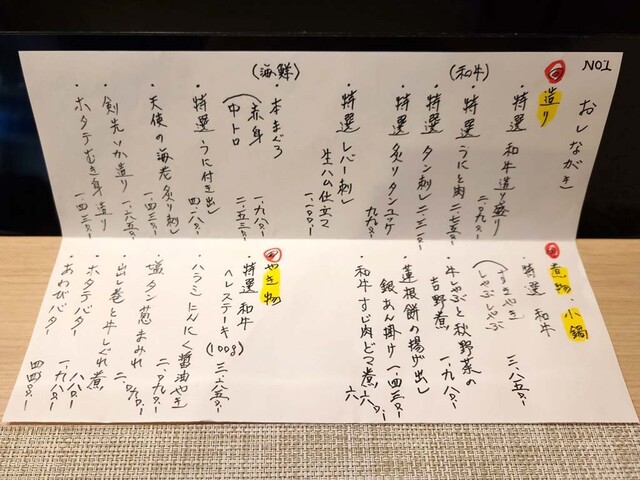 NO1
おしながき
造り
(和牛)
・特選 和牛造り盛り
二、九七〇-
・特選 うにと肉 二、七五〇-
・特選 タン刺し 二、三一〇-
・特選 炙りタンユッケ
九九〇-
・特選 レバー刺し
生ハム仕立て
一、一〇〇-
(海鮮)
・本まぐろ
赤身 一、九八〇-
中トロ 二、五三〇-
・特選 うに付き出し
四一八〇-
・天使の海老炙り刺し
一、四三〇-
・剣先いか造り
一、六五〇-
・ホタテむき身造り
一、四三〇-
煮物・小鍋
・特選 和牛
すきやき
しゃぶしゃぶ
三、八五〇-
・牛しぶと秋野菜の
吉野煮
一、九八〇-
・蓮根餅の揚げ出し
銀あん掛け
一、四三〇-
・和牛すじ肉どて煮
やき物
・特選 和牛
ヘレステーキ
(100g)
・ハラミにんにく醤油やき
・塩タン葱まみれ
二、九七〇-
・出し巻と牛しぐれ煮
・ホタテバター
一、九八〇-
・あわびバター
四四〇〇-